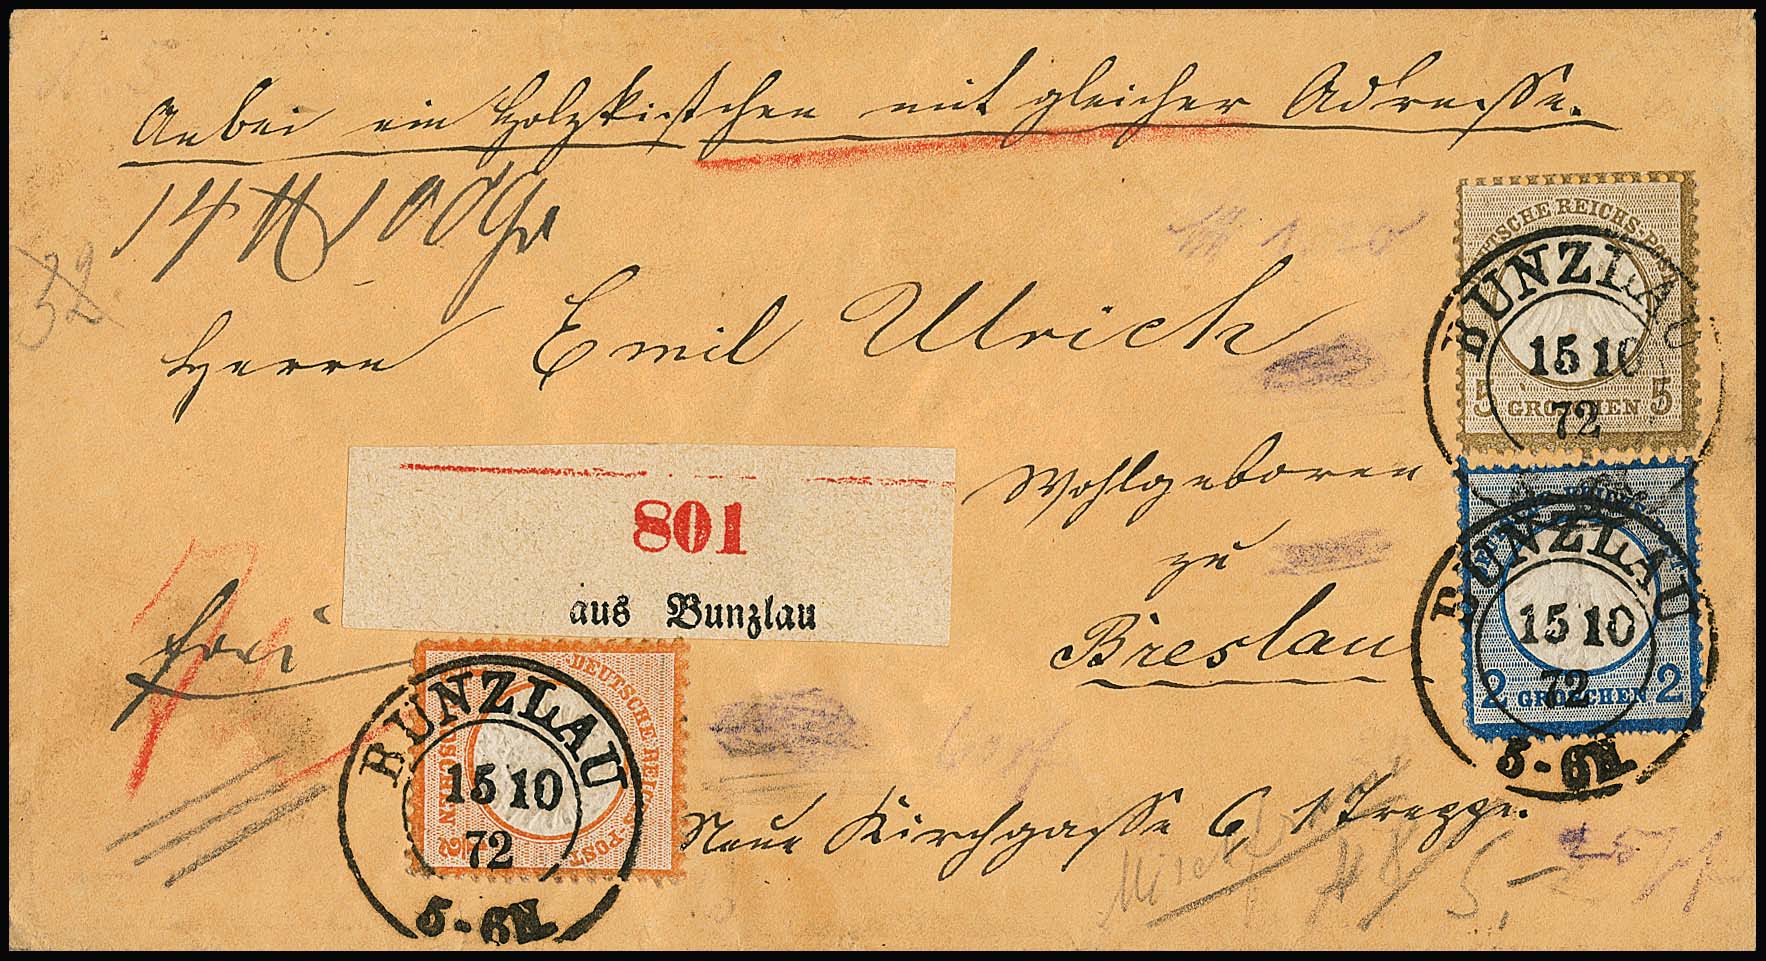 Anbei ein Holzkistchen mit gleicher Adresse.
14 ℔ 100 Gr
32
Herrn Emil Ulrich
Wohlgeboren
zu
Breslau
801
aus Bunzlau
frei
Neue Kirchgasse 6, 1 Treppe.
DEUTSCHE REICHS-POST
5 GROSCHEN 5
BUNZLAU
15 10
72
2 GROSCHEN 2
BUNZLAU
15 10
72
5-6N
DEUTSCHE REICHS-POST
1/2 GROSCHEN
BUNZLAU
15 10
72
5-6N